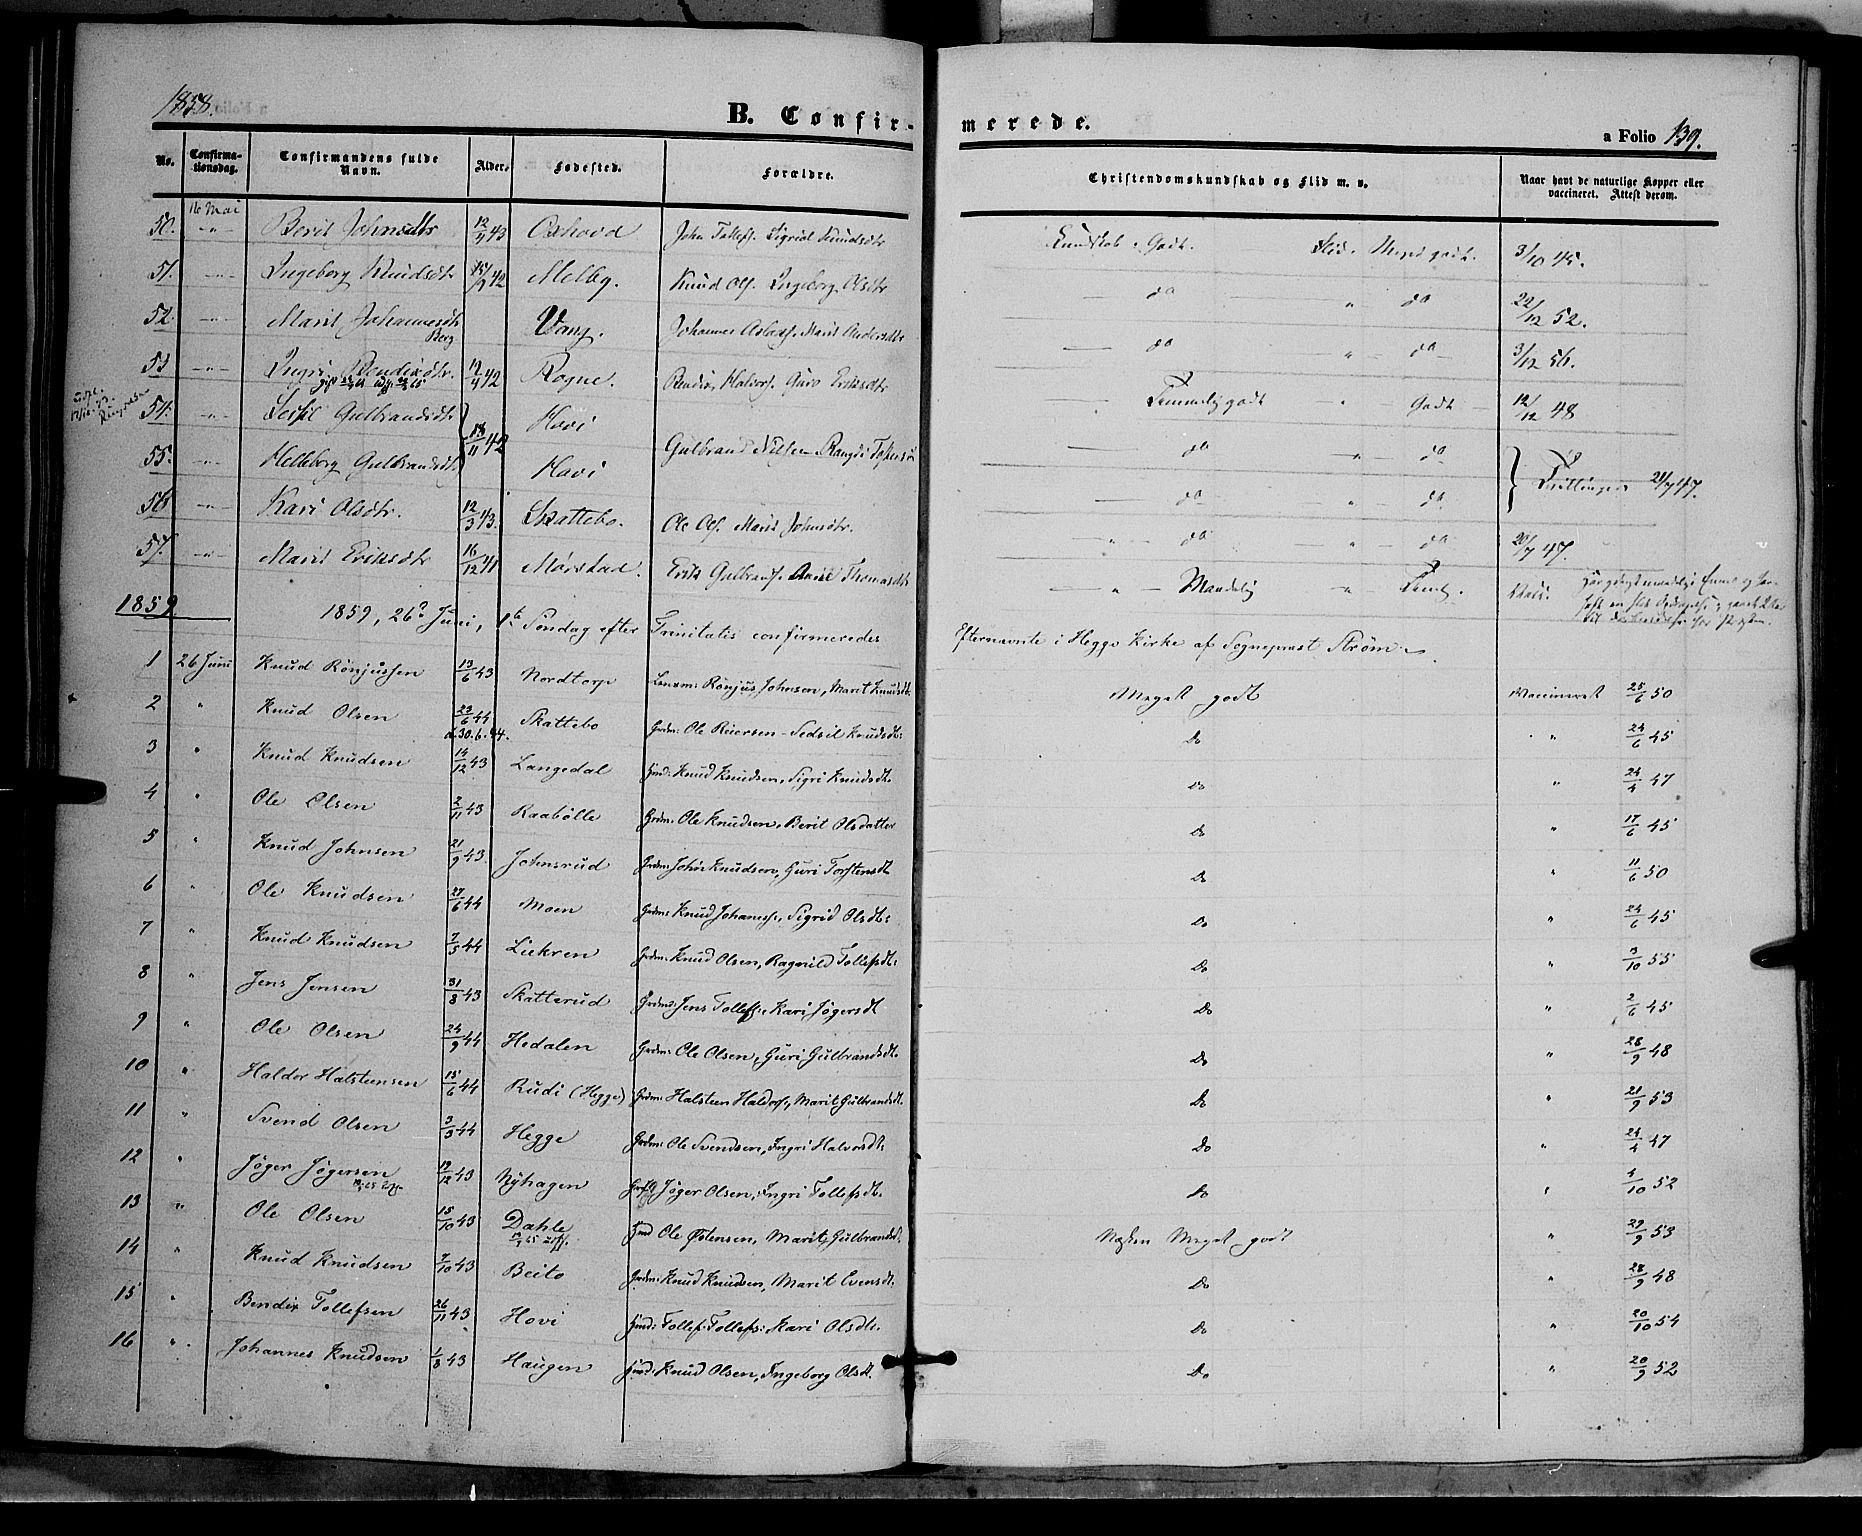 1858.
B. Confirmerede.
a Folio 139.
No. Confirmationsdag. Confirmandens fulde Navn. Alder. Fødested. Forældre. Christendomskundskab og Flid m. v. Naar havt de naturlige Kopper eller vaccineret. Attest derom.
16 Mai
50. -"- Berit Johnsdtr 12/4 43 Oxhovd John Tollefs. Sigrid Knudsdtr Kundskab: Godt. Flid. Meget godt. 3/10 45.
51. -"- Ingeborg Knudsdtr 42 Melby. Knud Ols. Ingeborg Olsdtr do " do 22/12 52.
52. -"- Marit Johannesdtr Berg Vang. Johannes Marit Andersdtr do " do 3/12 56.
53 -"- Ingri Bendixdtr. 12/4 42 Rogne. Bendix Halvors. Guro Eriksdtr Temmelig godt " Godt 12/12 48
54. -"- Gulbrandsdtr Hovi do " do
18/11 42 Gulbrand Nilsen
55. -"- Helleborg Gulbrandsdtr. Hovi do " do Tvillinger 21/7 47.
56 -"- Kari Olsdtr. 12/3 43. Skattebo. Ole Ols. Marit Johnsdtr. " do " do 20/7 47.
57. -"- Marit Eriksdtr 16/12 41 Mørstad. Erik Gulbrands. Thomasdtr " Maadelig " Temlg.
1859
1859, 26de Juni, 1ste Søndag efter Trinitatis confirmeredes Efternævnte i Hegge Kirke af Sogneprest Strøm.
1 26 Juni Knud Rönjussen 13/6 43 Nordtorp Lensm: Rönjus Johnsen, Marit Knudsdt: Meget godt Vaccineret 25/6 50
2 " Knud Olsen 23/6 44 d. 30.6.44. Skattebo Grdm: Ole Riersen - Sedsil Knudsdt: Do " 24/6 45
3 " Knud Knudsen 14/12 43 Langedal Hmd: Knud Knudsen, Sigri Knudsdt. Do " 24/4 47
4 " Ole Olsen 2/11 43 Raabölle Grdm: Ole Knudsen, Berit Olsdatter Do " 17/6 45
5 " Knud Johnsen 21/9 43. Johnsrud Grdm: John Knudsen, Guri Torstensdt Do " 11/6 50
6 " Ole Knudsen 27/6 44 Moen Grdm: Knud Johaness:, Sigrid Olsdt: Do " 24/6 45
7 " Knud Knudsen 7/5 44 Liekren Grdm: Knud Olsen, Ragnild Tollefsdt: Do " 3/10 55
8 " Jens Jensen 31/8 43 Skatterud Grdm: Jens Tollefs:, Kari Jögersdt Do " 2/6 45
9 " Ole Olsen 24/9 44 Hedalen Grdm: Ole Olsen, Guri Gulbrandsdt. Do " 28/9 48
10 " Haldor Halsteensen 15/6 44 Rudi (Hegge) Grdm: Halsteen Haldors:, Marit Gulbrandsdt. Do " 21/9 53
11 " Svend Olsen 3/3 44 Hegge Grdm: Ole Svendsen, Ingri Halvorsdt: Do " 24/4 47
12 " Jöger Jögersen 19/12 43 Nyhagen Jöger Olsen, Ingri Tollefsdt: Do " 4/10 52
13 " Ole Olsen 15/10 43 Dahle Hmd Ole Østensen, Marit Gulbrandsdt: Næsten Meget godt " 29/9 53
14 " Knud Knudsen 7/10 43 Beito Grdm: Knud Knudsen, Marit Evensdt: Do " 28/9 48
15 " Bendix Tollefsen 26/11 43 Hovi Hmd: Tollef: Tollefs: Kari Olsdt. Do " 20/10 54
16 " Johannes Knudsen 1/8 43 Haugen Hmd: Knud Olsen, Ingeborg Olsdt. Do " 20/9 52